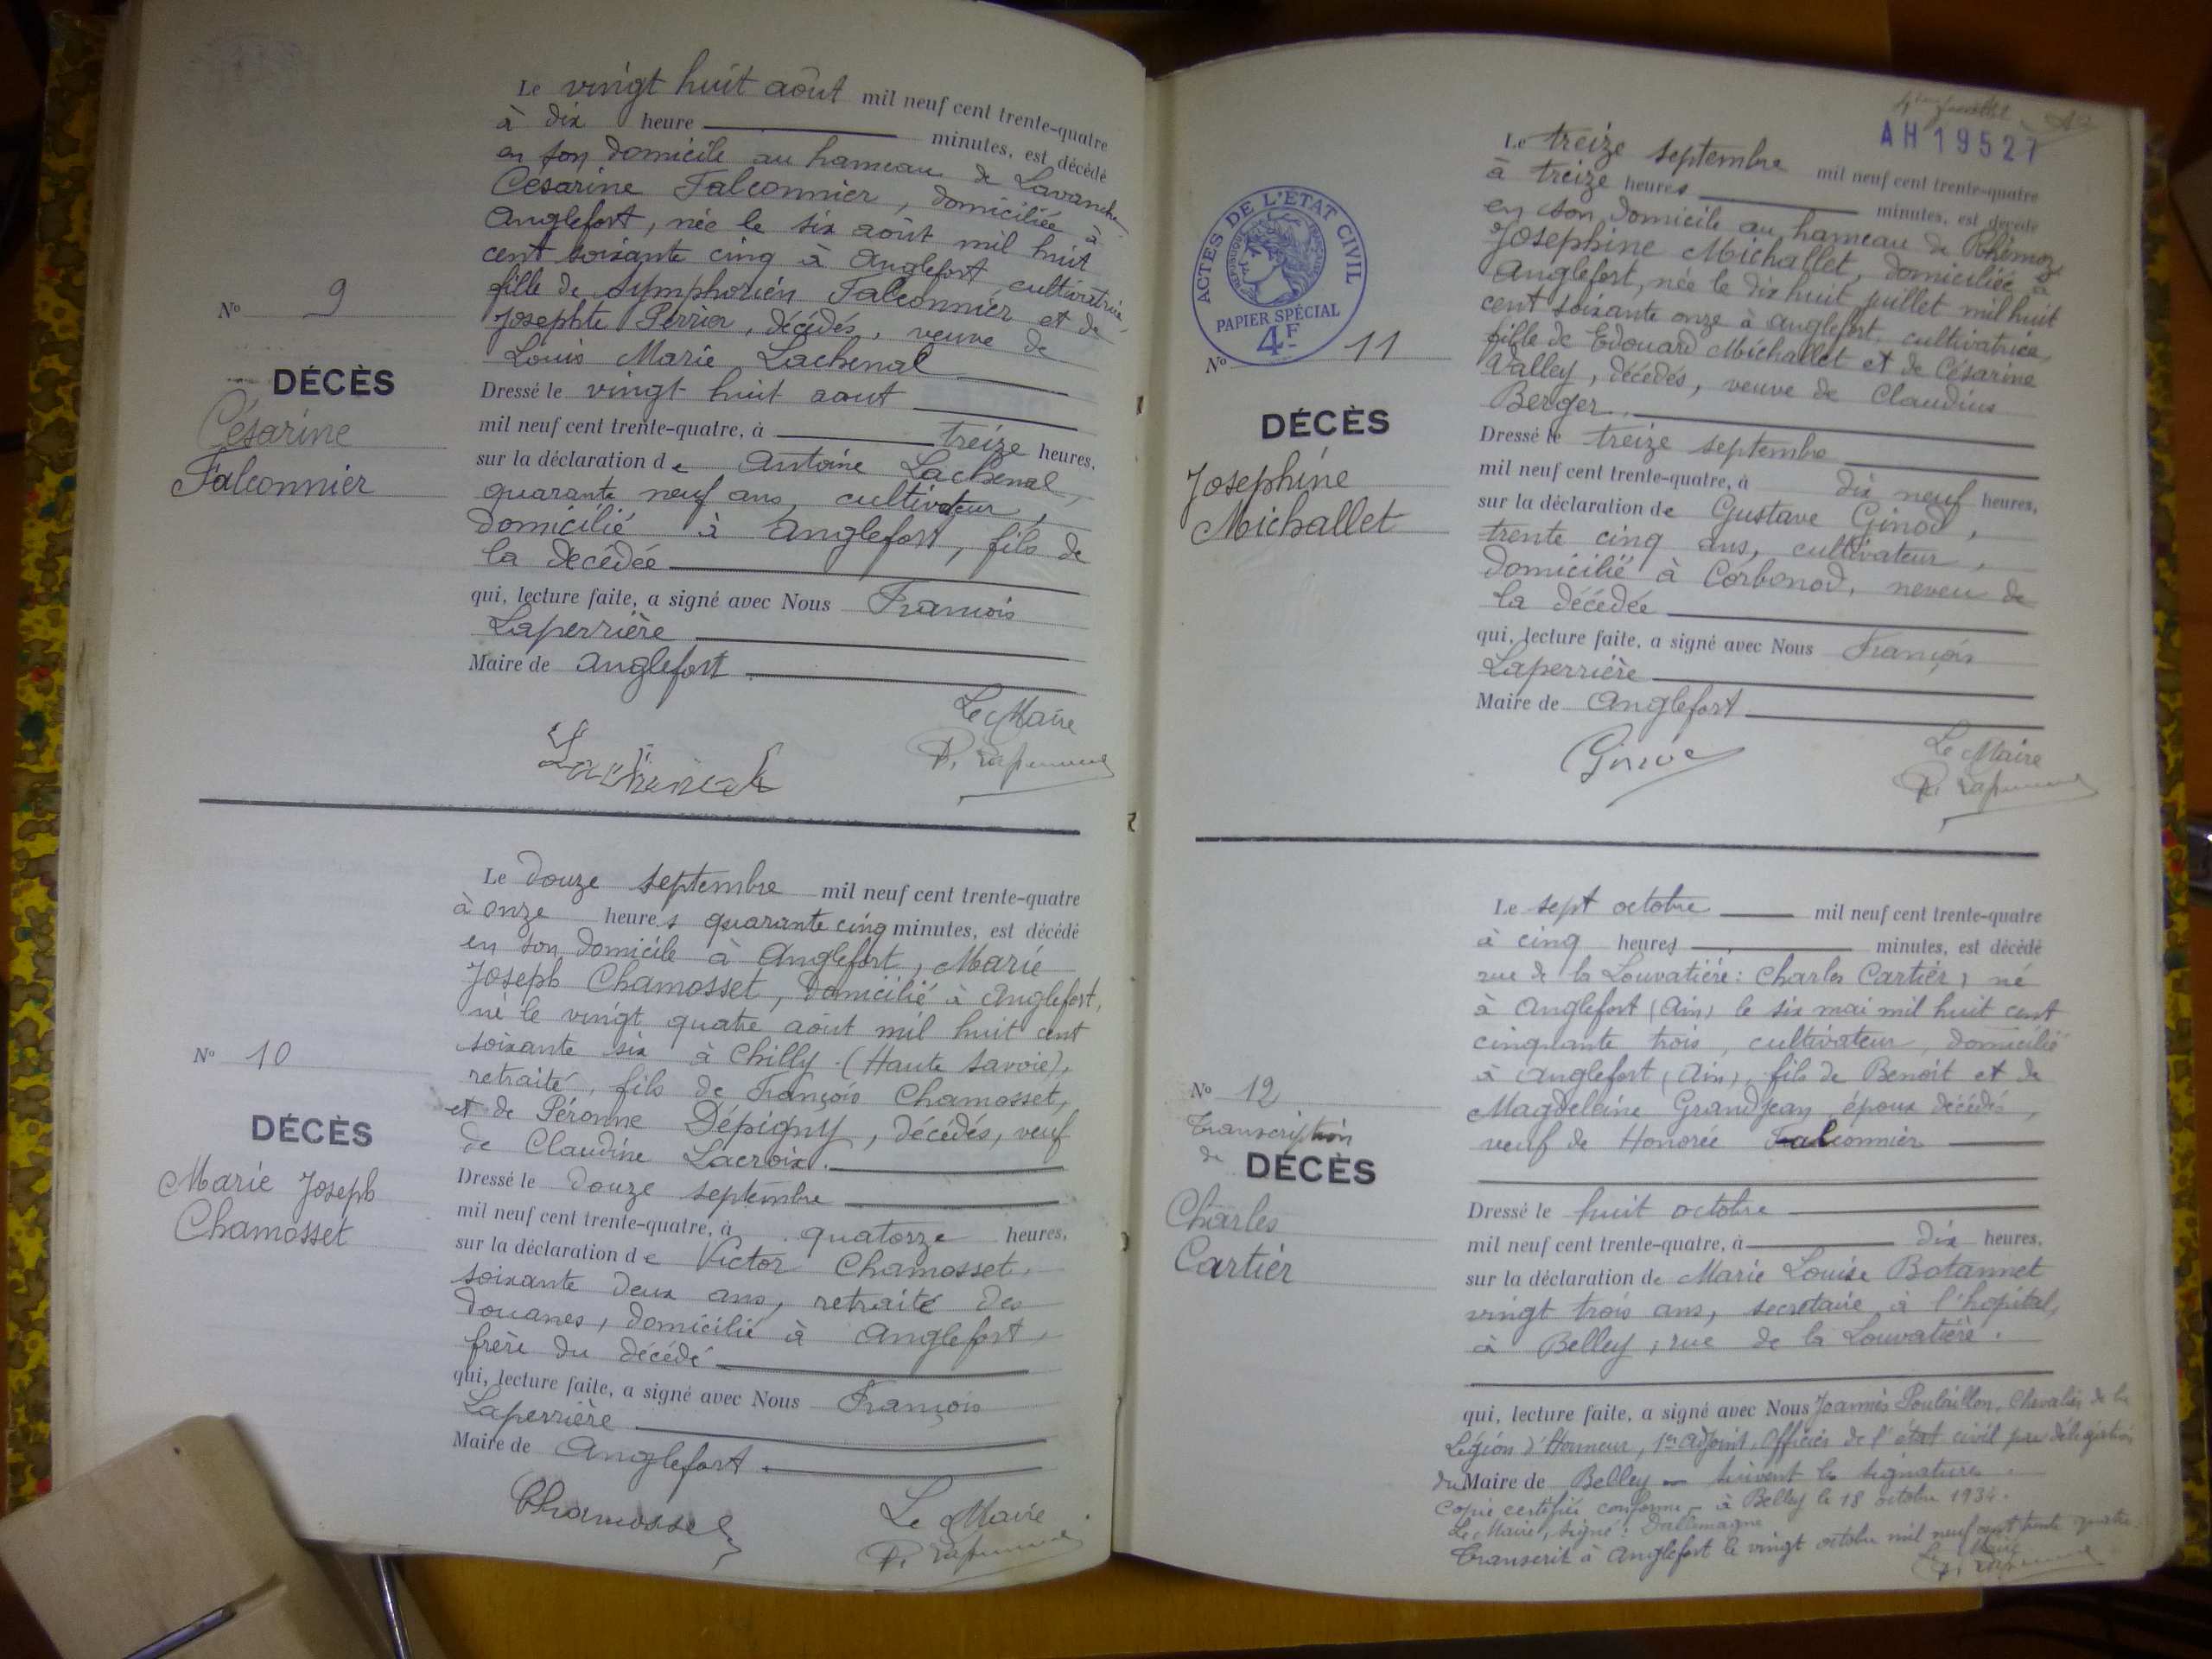 Le vingt huit août mil neuf cent trente-quatre
à dix heure minutes, est décédé
en son domicile au hameau de Lavanche
Césarine Falconnier, domiciliée à
Anglefort, née le six août mil huit
cent soixante cinq à Anglefort, cultivatrice,
fille de Symphorien Falconnier et de
Josephte Perrier, décédés, veuve de
Louis Marie Lachenal
Nº 9
DÉCÈS
Césarine
Falconnier
Dressé le vingt huit aout
mil neuf cent trente-quatre, à treize heures,
sur la déclaration de Antoine Lachenal,
quarante neuf ans, cultivateur,
domicilié à Anglefort, fils de
la décédée
qui, lecture faite, a signé avec Nous François
Laperrière
Maire de Anglefort
Le Maire
Lachenal
Le douze septembre mil neuf cent trente-quatre
à onze heures quarante cinq minutes, est décédé
en son domicile à Anglefort, Marie
Joseph Chamosset, domicilié à Anglefort,
né le vingt quatre août mil huit cent
soixante six à Chilly (Haute Savoie),
retraité, fils de François Chamosset,
et de Péronne Dépigny, décédés, veuf
de Claudine Lacroix.
Nº 10
DÉCÈS
Marie Joseph
Chamosset
Dressé le douze septembre
mil neuf cent trente-quatre, à quatorze heures,
sur la déclaration de Victor Chamosset,
soixante deux ans, retraité des
douanes, domicilié à Anglefort,
frère du décédé
qui, lecture faite, a signé avec Nous François
Laperrière
Maire de Anglefort
Chamosset
Le Maire
AH19527
Le treize septembre mil neuf cent trente-quatre
à treize heures minutes, est décédé
en son domicile au hameau de Rhémoz
Josephine Michallet, domiciliée à
Anglefort, née le dix huit juillet mil huit
cent soixante onze à Anglefort, cultivatrice,
fille de Edouard Michallet et de Césarine
Valley, décédés, veuve de Claudius
Berger
ACTES DE L'ÉTAT CIVIL
RÉPUBLIQUE FRANÇAISE
PAPIER SPÉCIAL
4F
Nº 11
DÉCÈS
Josephine
Michallet
Dressé le treize septembre
mil neuf cent trente-quatre, à dix neuf heures,
sur la déclaration de Gustave Ginod,
trente cinq ans, cultivateur,
domicilié à Corbonod, neveu de
la décédée
qui, lecture faite, a signé avec Nous François
Laperrière
Maire de Anglefort
Ginod
Le Maire
Le sept octobre mil neuf cent trente-quatre
à cinq heures minutes, est décédé
rue de la Louvatière: Charles Cartier, né
à Anglefort (Ain) le six mai mil huit cent
cinquante trois, cultivateur, domicilié
à Anglefort (Ain), fils de Benoit et de
Magdeleine Grandjean, époux décédés,
veuf de Honorée Falconnier
Nº 12
Transcription
de DÉCÈS
Charles
Cartier
Dressé le huit octobre
mil neuf cent trente-quatre, à dix heures,
sur la déclaration de Marie Louise Botannet
vingt trois ans, secretaire à l'hopital,
à Belley, rue de la Louvatière.
qui, lecture faite, a signé avec Nous Joannès Poulaillon, Chevalier de la
Légion d'Honneur, 1er adjoint, Officier de l'état civil par délégation
du Maire de Belley - suivent les signatures.
Copie certifiée conforme - à Belley le 18 octobre 1934.
Le Maire, signé: Dallemagne
Transcrit à Anglefort le vingt octobre mil neuf cent trente quatre
Le Maire